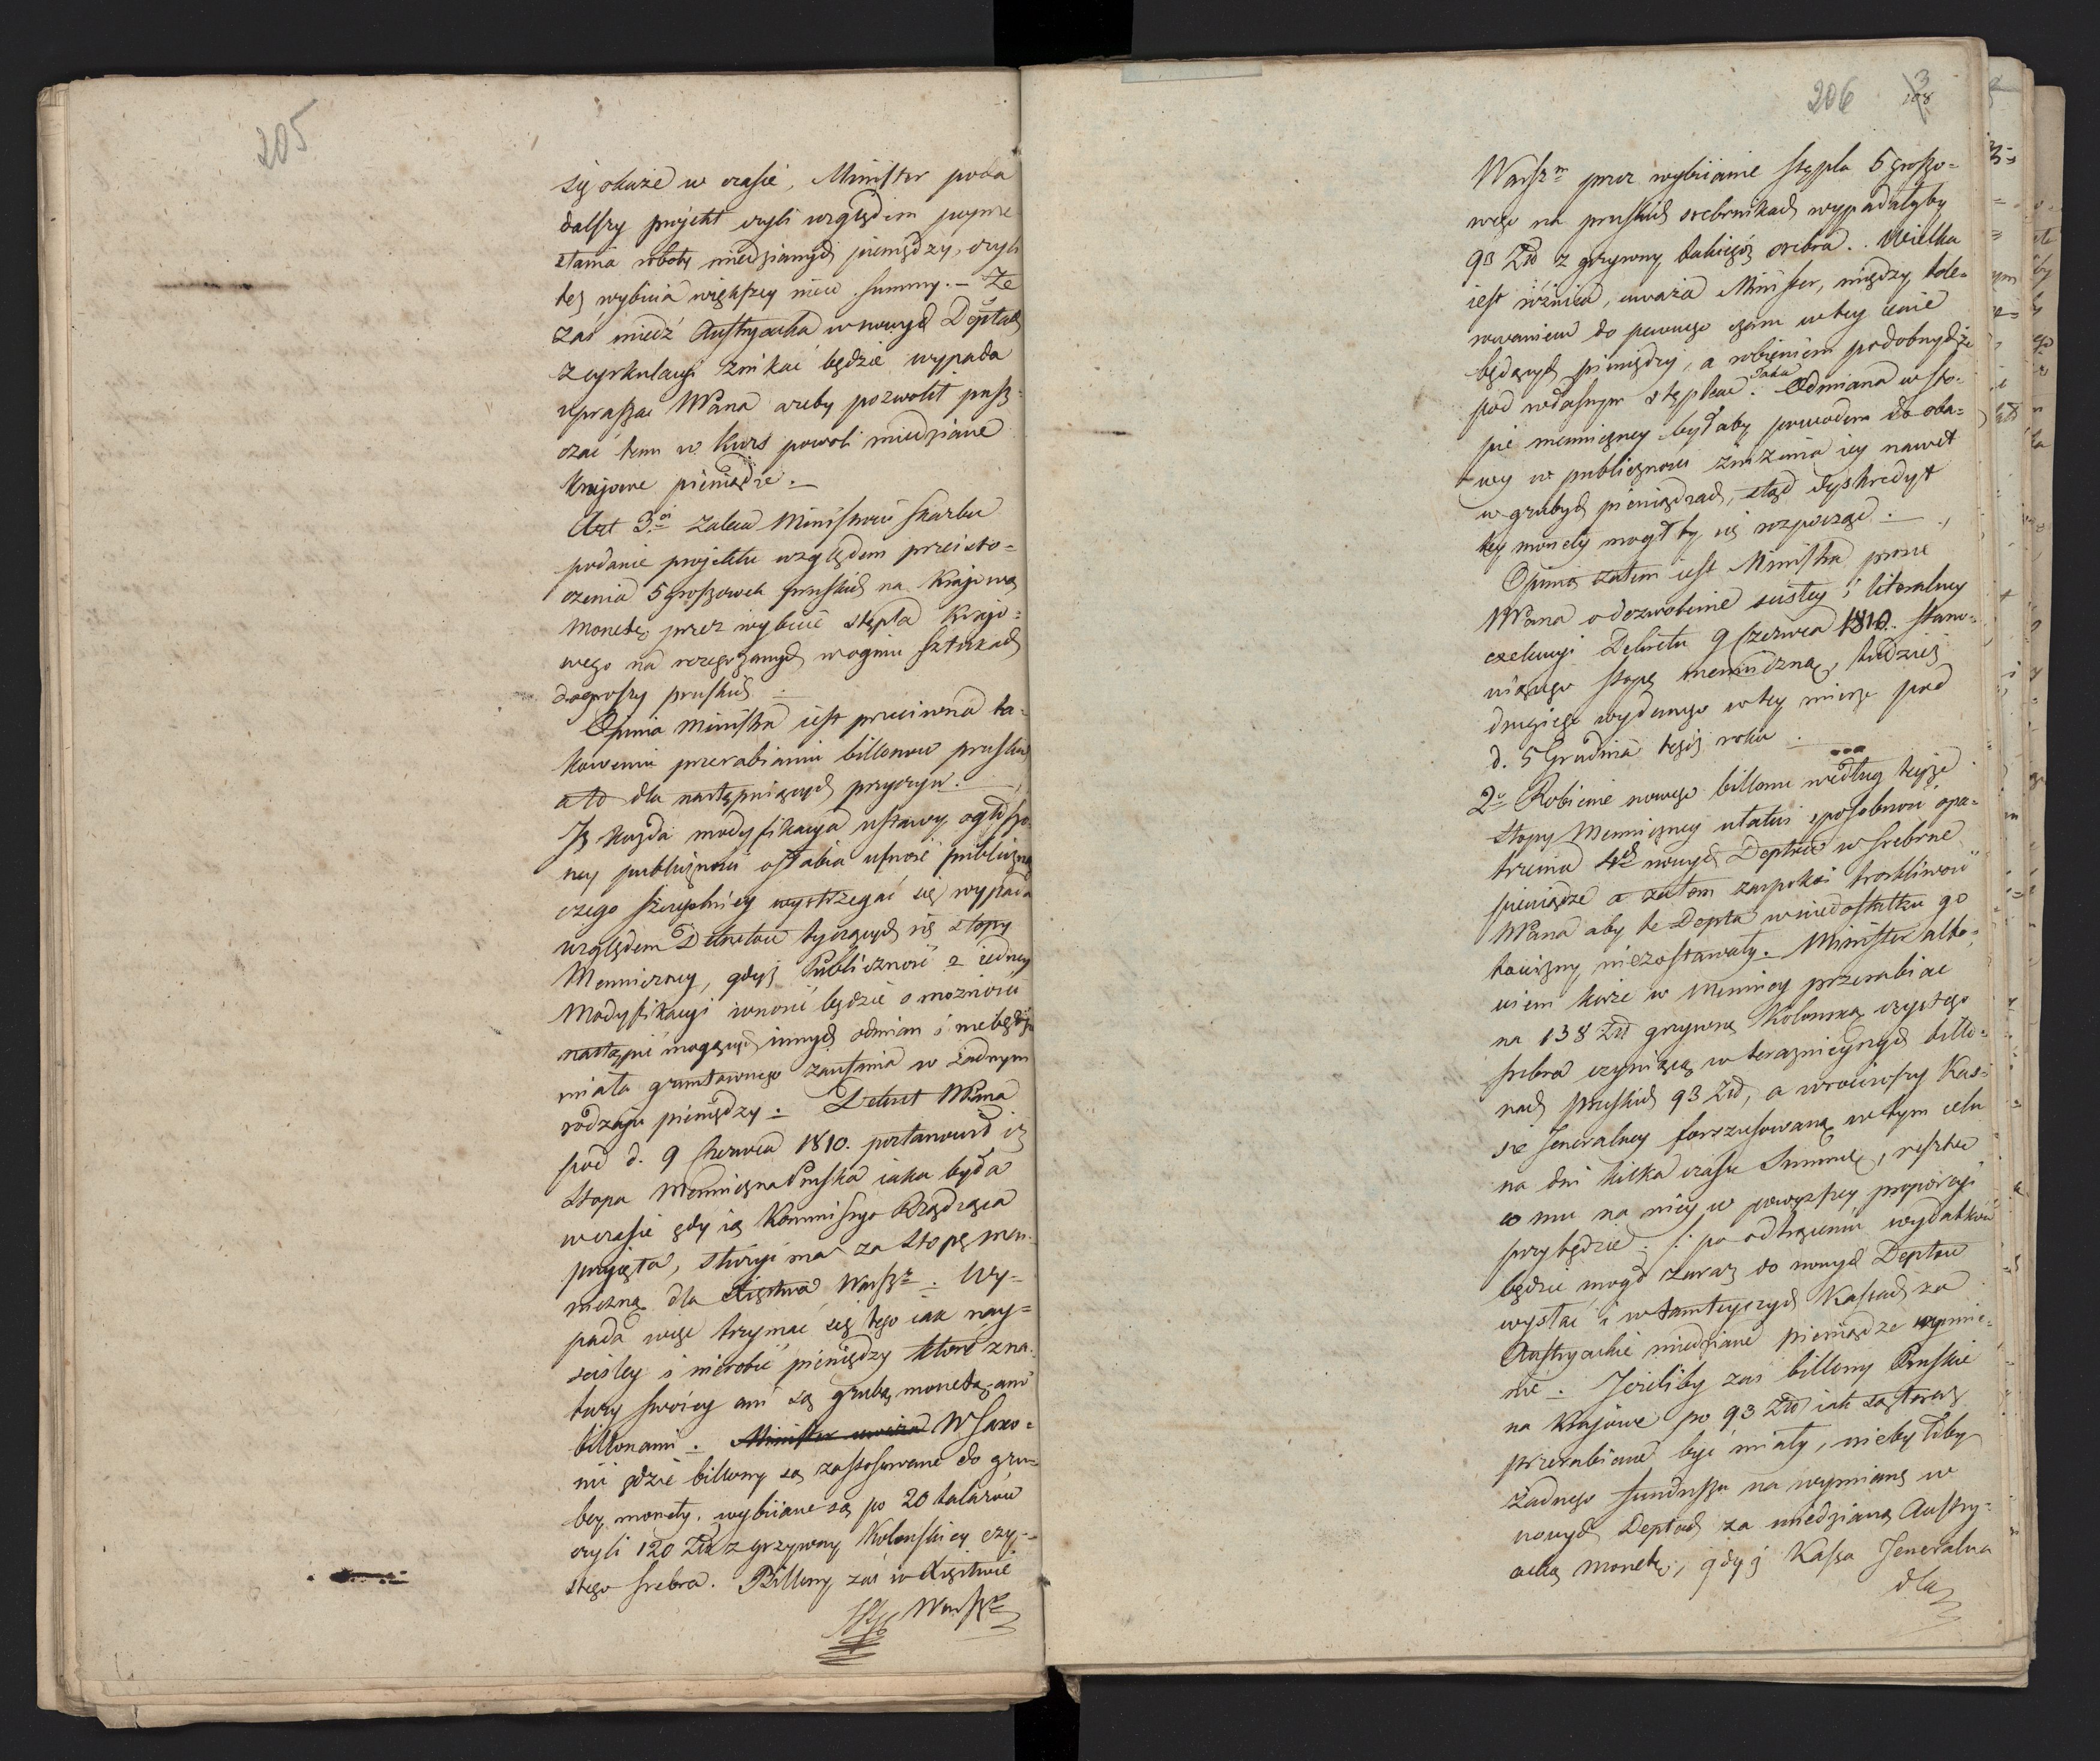 205
się okaże w czasie, Minister poda
dalszy projekt czyli względem przyprze-
stania roboty miedzianych pieniędzy, czyli
też wybicia większey nieco summy. – Że
zaś miedź Austryacka w nowych Deptach
z cyrkulacyi znikać będzie wypada
upraszać WPana ażeby pozwolił pusz-
czać tam w kurs powoli miedziane
krajowe pieniądze. –
Art 3ci zaleca Ministrowi Skarbu
podanie projektu względem przeisto-
czenia 5 groszowek pruskich na krajową
monetę przez wybicie stępla krajo-
wego na rozegrzanych w ogniu sztukach
dogroszy pruskich. –
Opinia Ministra iest przeciwna ta-
kowemu przerabianiu billonow pruskich
a to dla następuiących przyczyn. –
Iż każda modyfikacya ustawy ogłoszo-
ney publiczności osłabia ufność publiczną
czego szczegolniey wystrzegać się wypada
względem Dekretow tyczących się stopy
Menniczney, gdyż Publiczność z iedney
Modyfikacyi wnosić będzie o możności
nastąpić mogących innych odmian i niebędzie
miała gruntownego zaufania w żadnym
rodzaju pieniędzy. – Dekret WPana
pod d. 9 Czerwca 1810. postanowił iż
Stopa Mennicza Pruska iaka była
w czasie gdy ią Kommissya Rządząca
przyięła, służyć ma za stopę men-
niczną dla Xięstwa Warszo. – Wy-
pada więc trzymać się tego iak nay-
ściśley i nierobić pieniędzy które z na-
tury swoiey ani są grubą monetą, ani
billonami. – Minister uważa W Saxo-
nii gdzie billony są zastosowane do gru-
bey monety, wybiiane są po 20 talarów
czyli 120 Złł z grzywny Kolonskiey czy-
stego srebra. Billony zaś w Xięstwie
Warszo
206
3
108
Warszm przez wybiianie stępla 5 groszo-
wego na pruskich srebrnikach wypadałyby
93 Złł z grzywny takiegoż srebra. . Wielka
iest różnica, uważa Minister, między tole-
rowaniem do pewnego czasu w tey cenie
będących pieniędzy, a robieniem podobnychże
pod własnym stęplem. Taka Odmiana w sto-
pie menniczney byłaby powodem do oba-
wy w publiczności zniżenia iey nawet
w grubych pieniądzach, stąd dyskredyt
tey monety mogłby się rozpocząć. –
Opinią zatem iest Ministra prosić
WPana o dozwolenie ścisłey i literalney
exekucyi Dekretu 9 Czerwca 1810. stano-
wiącego stopę menniczną, tudzież
drugiego wydanego w tey mierze pod
d. 5 Grudnia tegoż roku. –
2o Robienie nowego billonu według teyże
Stopy Menniczney ułatwi sposobność opa-
trzenia 4ch nowych Deptow w srebrne
pieniądze a zatem zaspokoi troskliwość
WPana aby te Depta w niedostatku go-
towizny niezostawały. Minister albo-
wiem każe w Mennicy przerabiać
na 138 Złł grzywnę Kolonską czystego
srebra czyniącą w teraznieyszych billo-
nach pruskich 93 Złł, a wróciwszy Kas-
sie Jeneralney forszusowaną w tym celu
na dni kilka czasu Summę, resztę
co mu na niey w powyższey proporcyi
przybędzie /: po odtrąceniu wydatków
będzie mógł zaraz do nowych Deptow
wysłać i w tamteyszych Kassach za
Austryackie miedziane pieniądze wymie-
nić. – Jeżeliby zaś billony Pruskie
na Krajowe po 93 Złł iak są teraz
przerabiane być miały, nie byłoby
żadnego funduszu na wymianę w
nowych Deptach za miedzianą Austry-
acką monetę, gdyż Kassa Jeneralna
dla